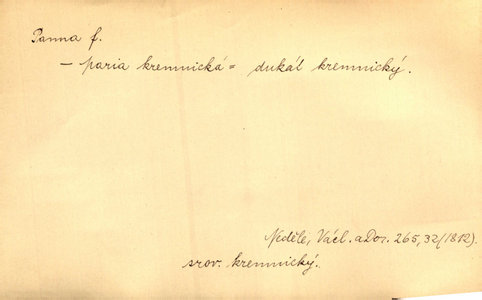 Panna f.
– paria kremnická = dukát kremnický.
Neděle, Václ. a Dor. 265, 32 (1812).
srov. kremnický.